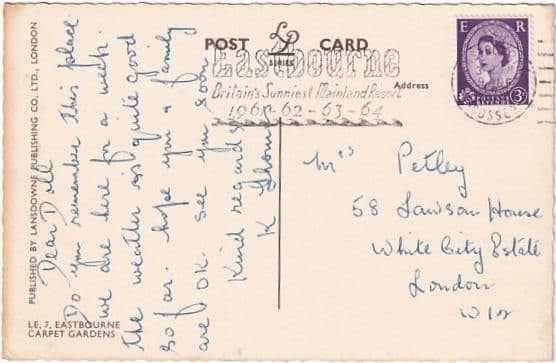 POST CARD
LP
SERIES
Eastbourne
Britain's Sunniest Mainland Resort
1961-62-63-64
Address
E R
POSTAGE REVENUE
3D
SUSSEX
PUBLISHED BY LANSDOWNE PUBLISHING CO., LTD., LONDON
Dear Doll
Do you remember this place
we are here for a week.
the weather is quite good
so far. hope you & family
are ok. see you soon
Kind regards
K
LE, 7, EASTBOURNE
CARPET GARDENS
Mrs Petley
58 Lawson House
White City Estate
London
W12